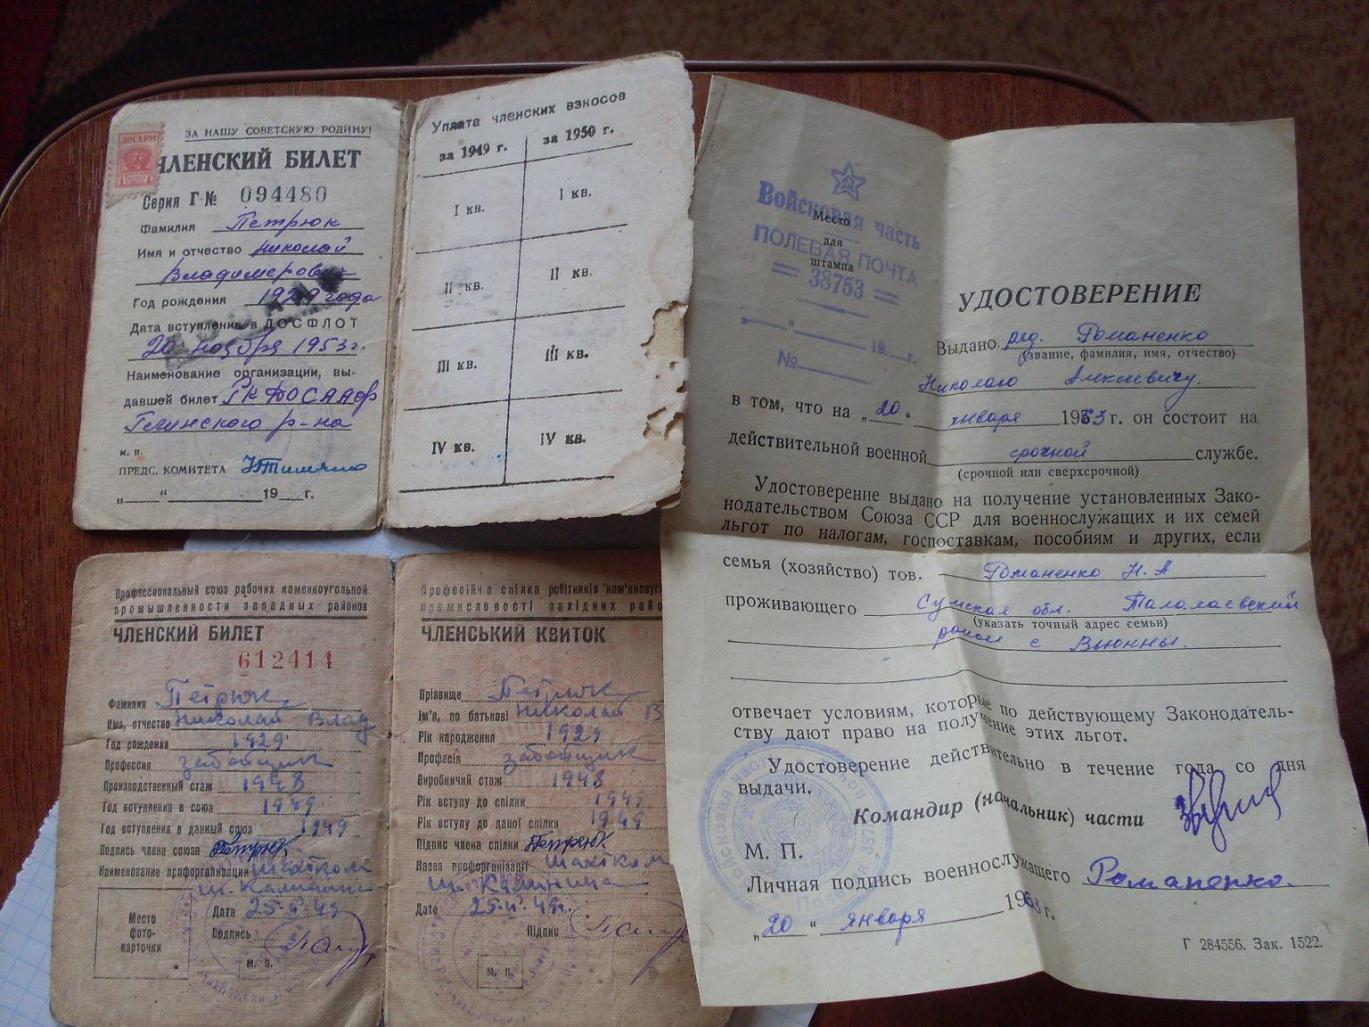 ЗА НАШУ СОВЕТСКУЮ РОДИНУ!
ДОСАРМ
ЧЛЕНСКИЙ БИЛЕТ
Серия Г № 094480
Фамилия Петрюк
Имя и отчество Николай
Владимерович
Год рождения 1929 года
Дата вступления в ДОСФЛОТ
20 ноября 1953 г.
Наименование организации, вы-
давшей билет РК ДОСААФ
р-на
м. п.
ПРЕДС. КОМИТЕТА
„___“ 19__г.
Уплата членских взносов
за 1949 г. за 1950 г.
I кв. I кв.
II кв. II кв.
III кв. III кв.
IV кв. IV кв.
Профессиональный союз рабочих каменноугольной
промышленности западных районов
ЧЛЕНСКИЙ БИЛЕТ
612414
Фамилия Петрюк
Имя, отчество Николай Влад
Год рождения 1929
Профессия забойщик
Производственный стаж 1948
Год вступления в союз 1949
Год вступления в данный союз 1949
Подпись члена союза Петрюк
Наименование профорганизации Шахтком
ш. Калинина
Место
фото-
карточки
Дата 25. 49
Подпись
М. П.
Професійна спілка робітників кам'яновуг
промисловості західних райо
ЧЛЕНСЬКИЙ КВИТОК
Прізвище Петрюк
Ім'я, по батькові Николай В
Рік народження 1929
Професія забойщик
Виробничий стаж 1948
Рік вступу до спілки 1949
Рік вступу до даної спілки 1949
Підпис члена спілки Петрюк
Назва профорганізації Шахтком
ш. Калинина
Дата 25. 49г.
Підпис
М. П.
Войсковая часть
ПОЛЕВАЯ ПОЧТА
= 38753 =
„___“ 19__г.
№
Место
для
штампа
УДОСТОВЕРЕНИЕ
Выдано ряд. Романенко
(звание, фамилия, имя, отчество)
Николаю Алексеевичу.
в том, что на „20“ января 1963 г. он состоит на
действительной военной срочной службе.
(срочной или сверхсрочной)
Удостоверение выдано на получение установленных Зако-
нодательством Союза ССР для военнослужащих и их семей
льгот по налогам, госпоставкам, пособиям и других, если
семья (хозяйство) тов. Романенко Н. А
проживающего Сумская обл. Талалаевский
(указать точный адрес семьи)
район с Вьюнны.
отвечает условиям, которые по действующему Законодатель-
ству дают право на получение этих льгот.
Удостоверение действительно в течение года со дня
выдачи.
Командир (начальник) части
М. П.
Личная подпись военнослужащего Романенко.
„20“ января 1963 г.
Г 284556. Зак. 1522.